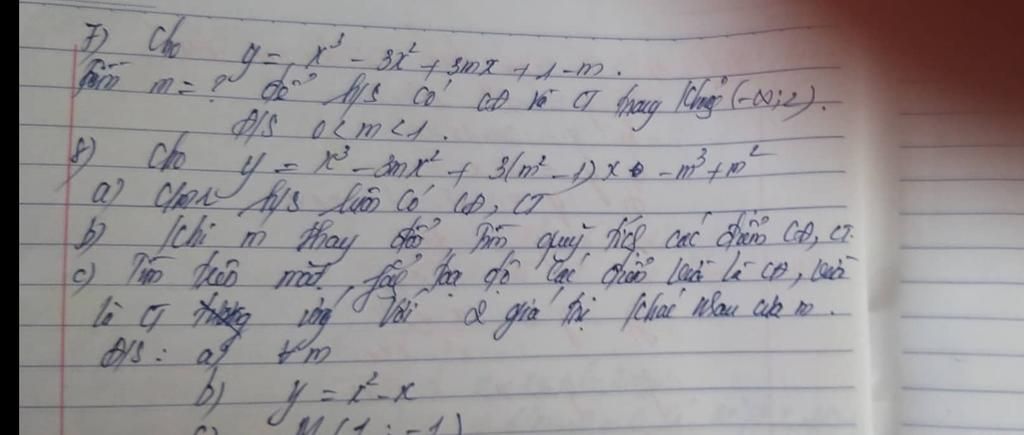 7) Cho y = x³ - 3x² + 3mx + 1 - m.
Tìm m = ? để h/s có CĐ và CT trong khoảng (-∞; 2).
Đ/S 0 < m < 1.
8) Cho y = x³ - 3mx² + 3(m² - 1)x - m³ + m²
a) CMR h/s luôn có CĐ, CT
b) Khi m thay đổi, tìm quỹ tích các điểm CĐ, CT.
c) Tìm trên mặt phẳng tọa độ các điểm vừa là CĐ, vừa
là CT ứng với 2 giá trị khác nhau của m.
Đ/S: a) ∀m
b) y = x² - x
c) M(1; -1)